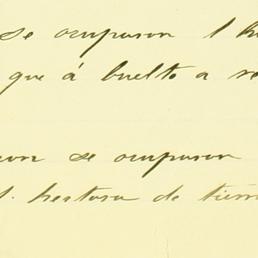 se ocuparon 1
que á buelto a
se ocuparon
hectara de tierra